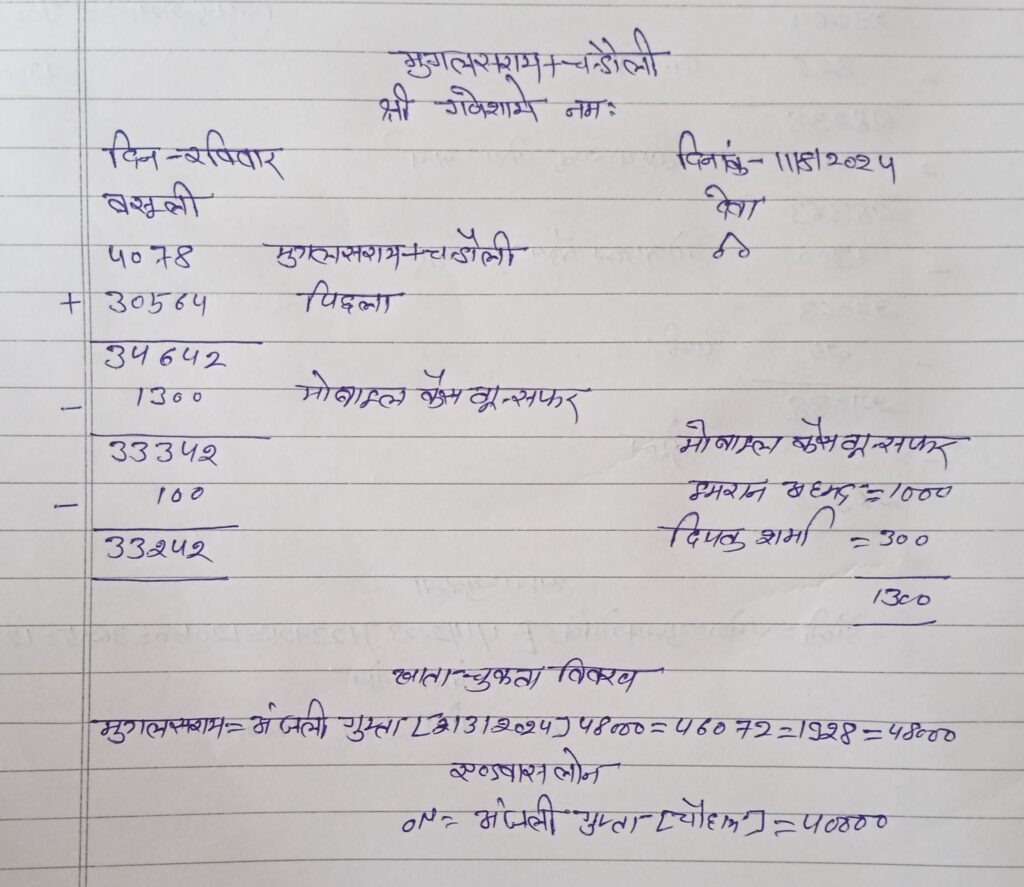 मुगलसराय+चन्दौली
श्री गणेशाये नमः
दिन-रविवार दिनांक-11/8/2024
बसूली देवा
4078 मुगलसराय+चन्दौली
+ 30564 पिछला
34642
- 1300 मोबाइल कैस ट्रान्सफर
33342 मोबाइल कैस ट्रान्सफर
- 100 इमरान अहमद =1000
33242 दिपक शर्मा =300
1300
खाता-चुकता विवरण
मुगलसराय= अंजली गुप्ता [2/3/2024] 48000=46072=1928=48000
एडवांस लोन
अंजली गुप्ता- =40000